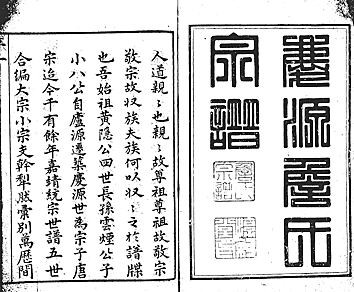 慶源詹氏
宗譜
人道親〻也親〻故尊祖尊祖故敬宗
敬宗故収族夫族何以収〻之於譜牒
也吾始祖黃隱公四世長孫雲煙公子
小八公自廬源遷婺慶源世為宗子唐
宗迄今千有餘年嘉靖統宗世譜五世
合編大宗小宗支幹犁然彙別萬歷間